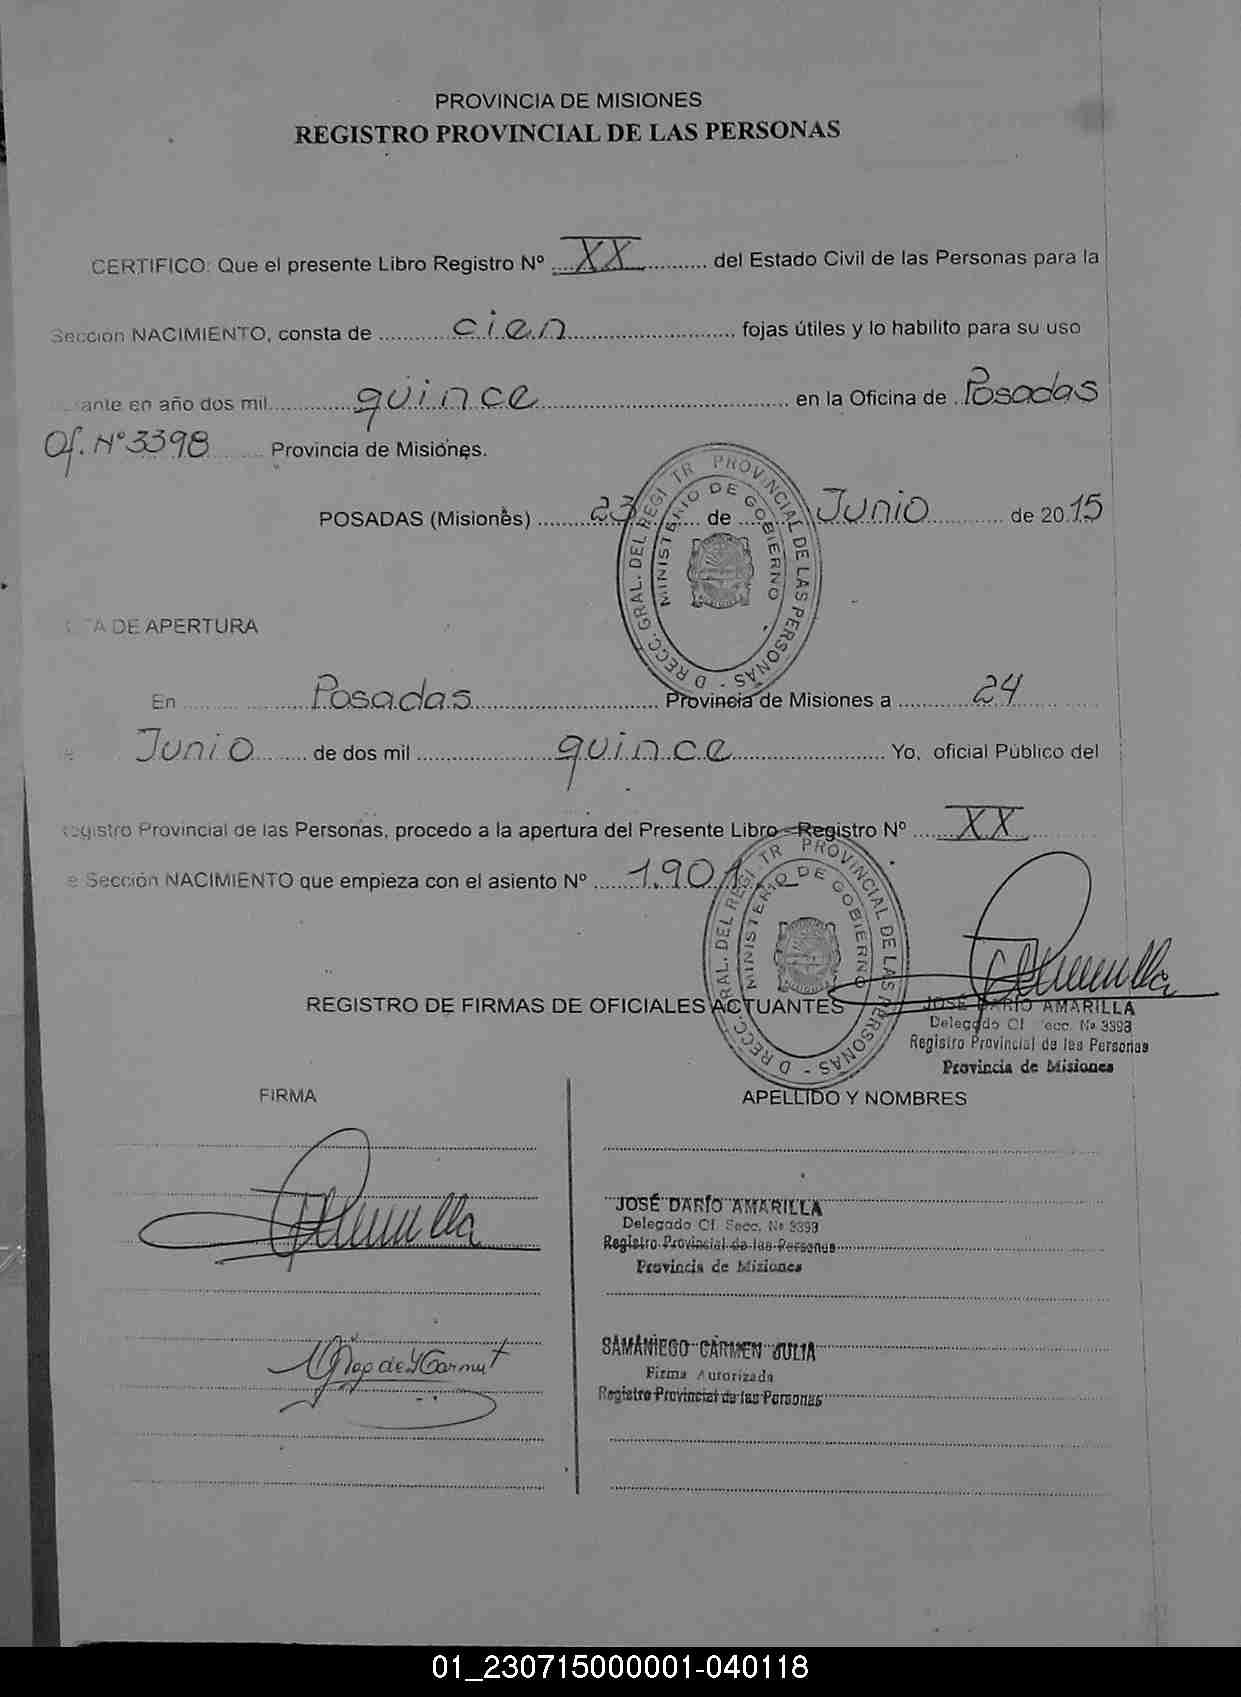 PROVINCIA DE MISIONES
REGISTRO PROVINCIAL DE LAS PERSONAS
CERTIFICO: Que el presente Libro Registro Nº XX del Estado Civil de las Personas para la
Sección NACIMIENTO, consta de cien fojas útiles y lo habilito para su uso
ante en año dos mil quince en la Oficina de Posadas
Of. Nº 3398 Provincia de Misiones.
POSADAS (Misiones) 23 de Junio de 2015
DIRECC. GRAL. DEL REGISTR PROVINCIAL DE LAS PERSONAS
MINISTERIO DE GOBIERNO
TA DE APERTURA
En Posadas Provincia de Misiones a 24
e Junio de dos mil quince Yo, oficial Público del
egistro Provincial de las Personas, procedo a la apertura del Presente Libro - Registro Nº XX
e Sección NACIMIENTO que empieza con el asiento Nº 1.901
DIRECC. GRAL. DEL REGISTR PROVINCIAL DE LAS PERSONAS
MINISTERIO DE GOBIERNO
REGISTRO DE FIRMAS DE OFICIALES ACTUANTES
JOSÉ DARÍO AMARILLA
Delegado Of. Secc. Nº 3398
Registro Provincial de las Personas
Provincia de Misiones
FIRMA APELLIDO Y NOMBRES
JOSÉ DARÍO AMARILLA
Delegado Of. Secc. Nº 3398
Registro Provincial de las Personas
Provincia de Misiones
SAMANIEGO CARMEN JULIA
Firma Autorizada
Registro Provincial de las Personas
01_230715000001-040118